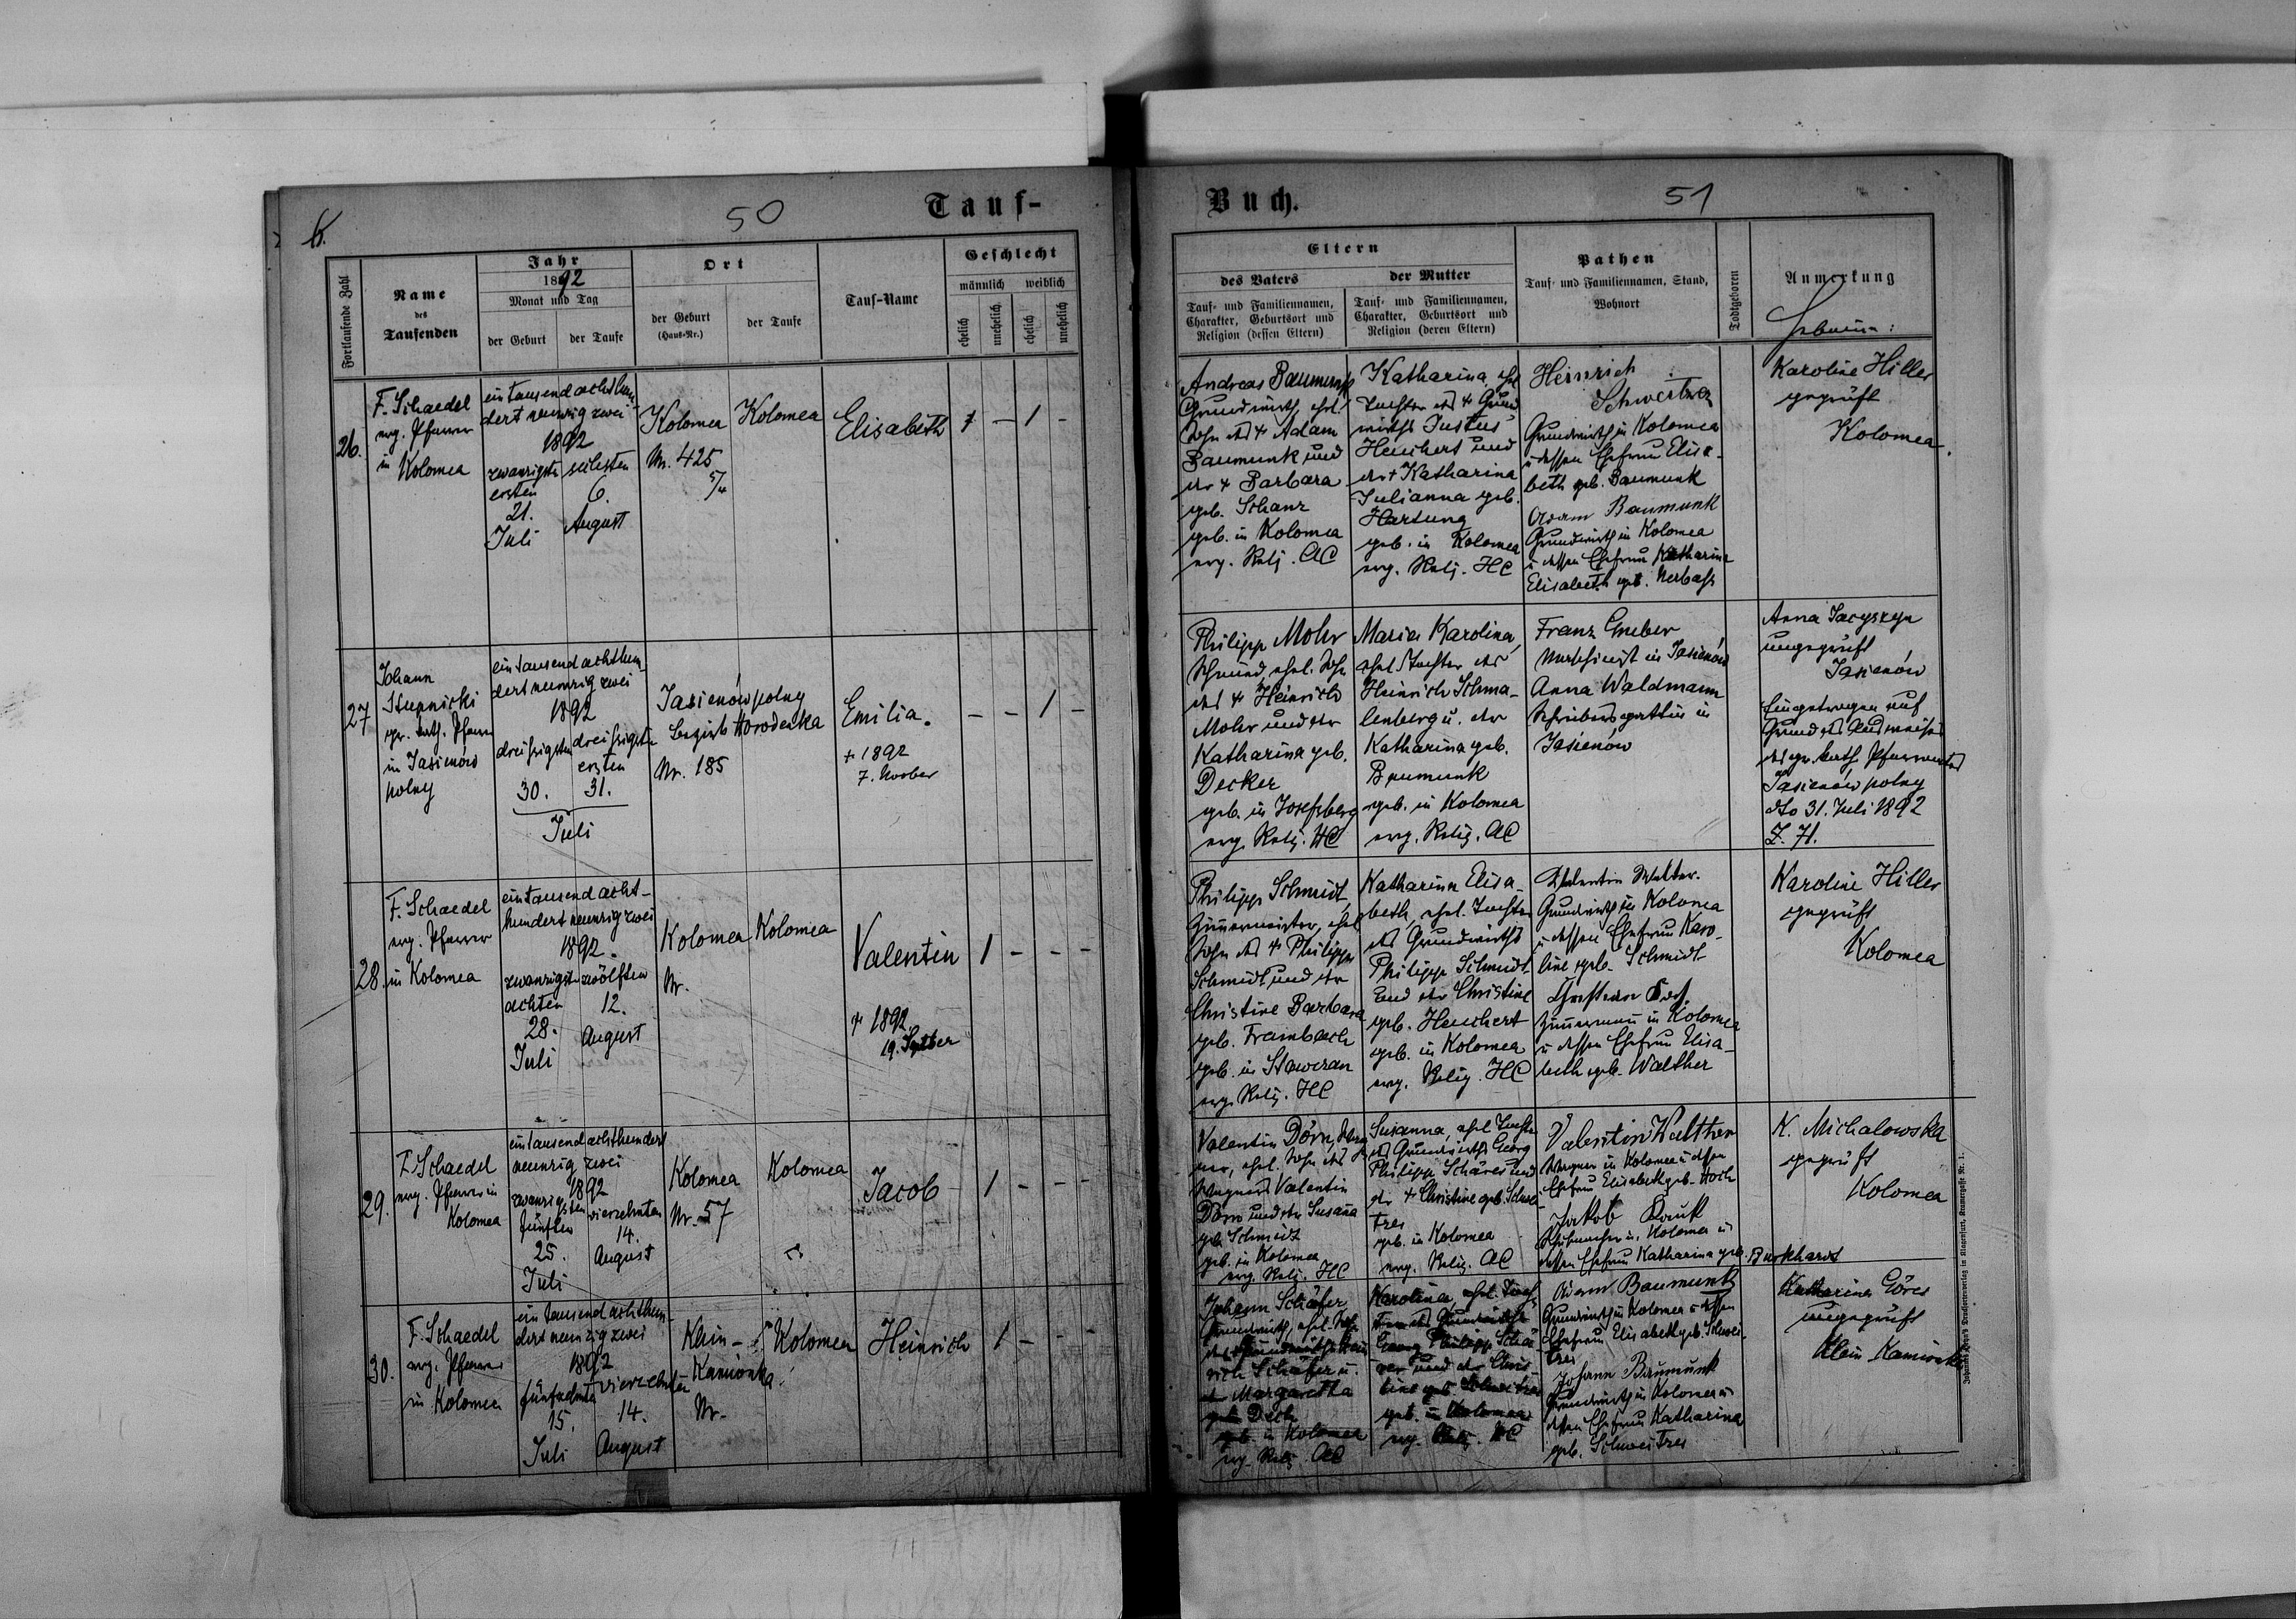 50
Tauf-
Buch.
51
Fortlaufende Zahl
Name
des
Taufenden
Jahr
1892
Monat und Tag
der Geburt
der Taufe
Ort
der Geburt
(Haus-Nr.)
der Taufe
Tauf-Name
Geschlecht
männlich
weiblich
ehelich
unehelich
ehelich
unehelich
Eltern
des Vaters
Tauf- und Familiennamen,
Charakter, Geburtsort und
Religion (dessen Eltern)
der Mutter
Tauf- und Familiennamen,
Charakter, Geburtsort und
Religion (deren Eltern)
Pathen
Tauf- und Familiennamen, Stand,
Wohnort
Todtgeboren
Anmerkung
26.
F. Schaedel
evg. Pfarrer
in Kolomea
ein tausend achthun-
dert neunzig zwei
1892
zwanzigsten
ersten
21.
Juli
sechsten
6.
August
Kolomea
Nr. 425
5/4
Kolomea
Elisabeth
1 – 1 –
Andreas Baumunk
Grundwirth, ehel.
Sohn des + Adam
Baumunk und
der + Barbara
geb. Schanz
geb. in Kolomea
evg. Relj. AC
Katharina, ehel
Tochter des + Grund
wirths Justus
Heuchert und
der + Katharina
Julianna geb.
Hartung
geb. in Kolomea
evg. Relj. HC
Heinrich
Schweitzer
Grundwirth in Kolomea
u dessen Ehefrau Elisa-
beth geb. Baumunk
Adam Baumunk
Grundwirth in Kolomea
u dessen Ehefrau Katharina
Elisabeth geb. Nerbass
Karoline Hiller
geprüft
Kolomea
27
Johann
Stupnicki
gr. kath. Pfarrer
in Jasienów
polny
ein tausend achthun-
dert neunzig zwei
1892
dreissigsten
30.
dreissigsten
ersten
31.
Juli
Jasienów polny
Bezirk Horodenka
Nr. 185
Emilia.
+ 1892
7. Novber
– – 1 –
Philipp Mohr
Schmied, ehel. Sohn
des + Heinrich
Mohr und der
Katharina geb.
Decker
geb. in Josefsberg
evg. Relj. HC
Maria Karolina,
ehel Tochter des
Heinrich Schma-
lenberg u. der
Katharina geb.
Baumunk
geb. in Kolomea
evg. Relig. AC
Franz Gruber
Maschinist in Jasienów
Anna Waldmann
Schreibersgattin in
Jasienów
Anna Jacyszyn
ungeprüft
Jasienów
Eingetragen auf
Grund des Ausweises
des gr. kath. Pfarramtes
Jasienów polny
dto 31. Juli 1892
Z. 71.
28.
F. Schaedel
evg. Pfarrer
in Kolomea
ein tausend acht-
hundert neunzig zwei
1892.
zwanzigsten
achten
28.
Juli
zwölften
12.
August
Kolomea
Nr.
Kolomea
Valentin
+ 1892
19. Septber
1 – – –
Philipp Schmidt,
Zimmermeister, ehel
Sohn des + Philipp
Schmidt und der
Christine Barbara
geb. Frambach
geb. in Stawczan
evg. Relj. HC
Katharina Elisa-
beth, ehel. Tochter
des Grundwirths
Philipp Schmidt
und der Christine
geb. Heuchert
geb. in Kolomea
evg. Relig. HC
Valentin Walter.
Grundwirth in Kolomea
u dessen Ehefrau Karo-
line geb. Schmidt
Zimmermann in Kolomea
u dessen Ehefrau Elisa-
beth geb. Walther
Karoline Hiller
geprüft
Kolomea
29.
F. Schaedel
evg. Pfarrer in
Kolomea
ein tausend achthundert
neunzig zwei
1892
zwanzigsten
fünften
25.
Juli
vierzehnten
14.
August
Kolomea
Nr. 57
Kolomea
Jacob
1 – – –
Valentin Dörn, Wag
ner, ehel. Sohn des
Wagners Valentin
Dörn und der Susana
geb. Schmidt
geb. in Kolomea
evg. Relj. HC
Susanna, ehel Tochter
des Grundwirths Georg
Philipp Schärer und
der + Christine geb. Schwei
tzer
geb. in Kolomea
evg. Relig. AC
Valentin Walther
Wagner in Kolomea u dessen
Ehefrau Elisabeth geb. Koch
Jakob Kauk
Schuhmacher in Kolomea u
dessen Ehefrau Katharina geb. Burkhardt
K. Michalowska
geprüft
Kolomea
30.
F. Schaedel
evg. Pfarrer
in Kolomea
ein tausend achthun-
dert neunzig zwei
1892
fünfzehnten
15.
Juli
vierzehnten
14.
August
Klein-
Kamionka
Nr.
Kolomea
Heinrich
1 – – –
Johann Schäfer
Grundwirth, ehel. Sohn
des Grundwirths Hein
rich Schäfer u.
der Margaretha
geb. Dech
geb. in Kolomea
evg. Relj. AC
Karolina, ehel. Toch
ter des Grundwirths
Georg Philipp Schä
rer und der Chris
tine geb. Schweitzer
geb. in Kolomea
evg. Relj. HC
Adam Baumunk
Grundwirth in Kolomea u dessen
Ehefrau Elisabeth geb. Schwei-
tzer
Johann Baumunk
Grundwirth in Kolomea u
dessen Ehefrau Katharina
geb. Schweitzer
Katharina Göres
ungeprüft
Klein Kamionka